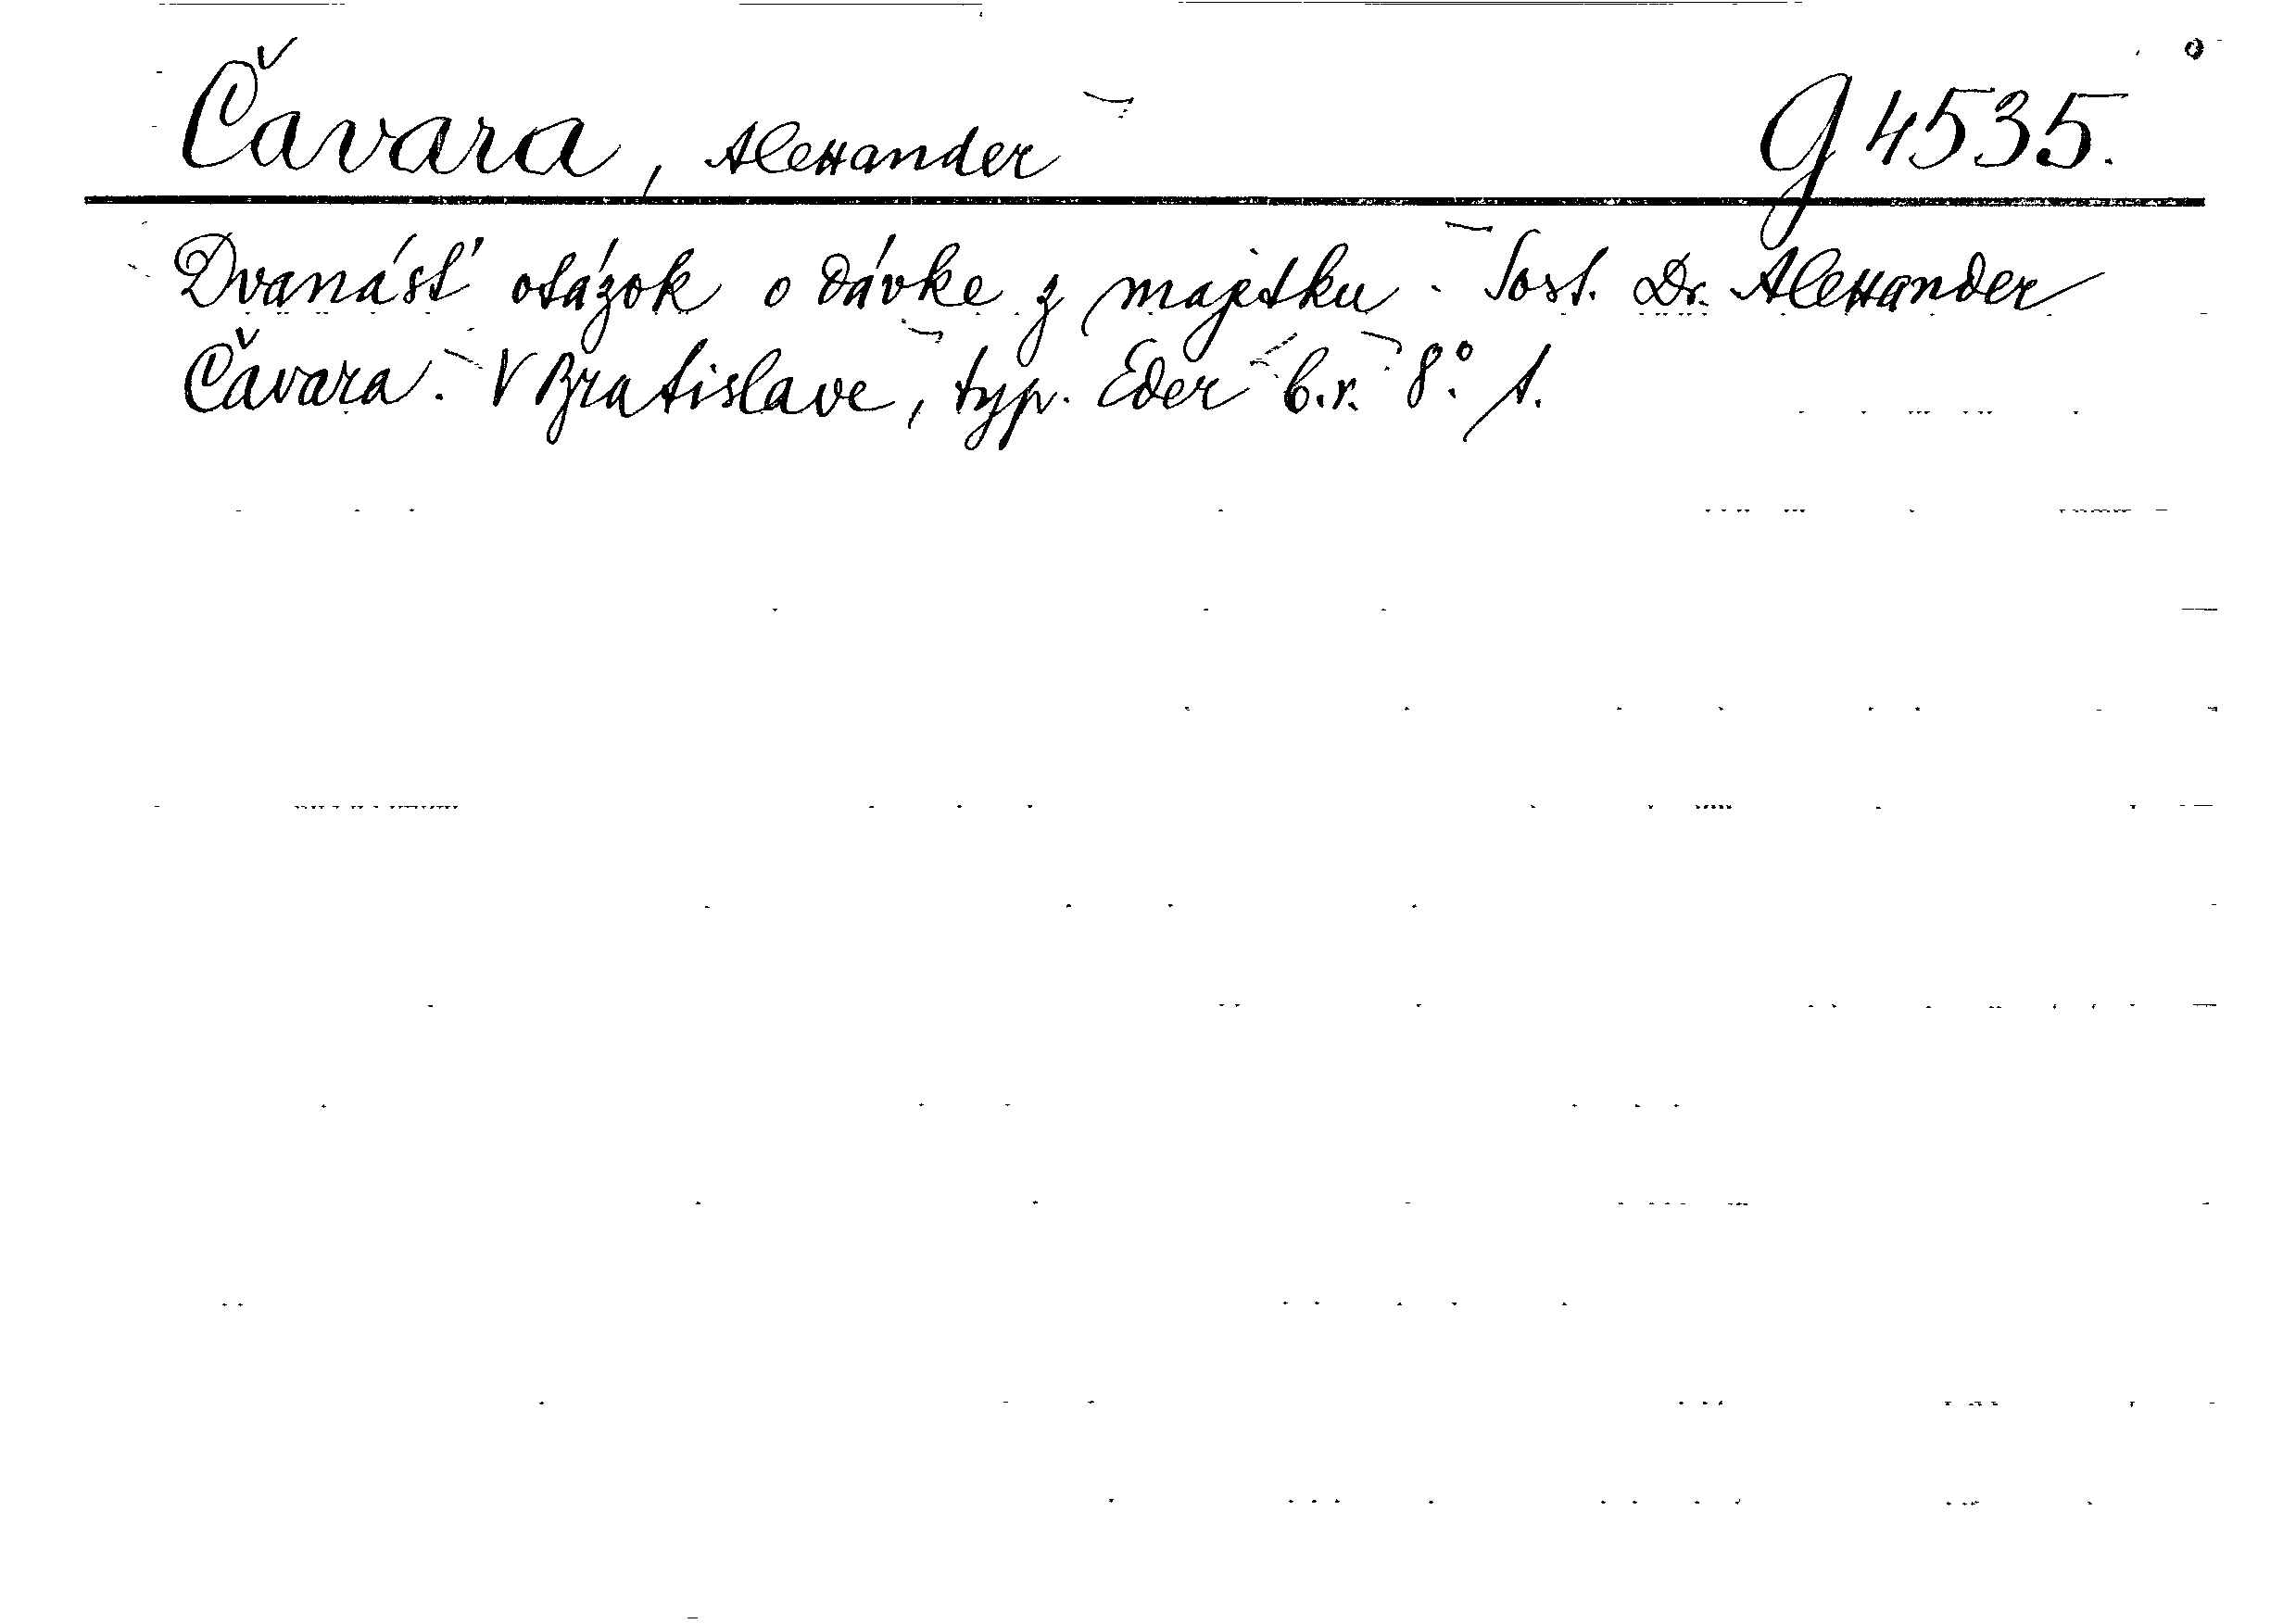 Čavara, Alexander G 4535.
Dvanásť otázok o dávke z majetku. - Sost. Dr. Alexander
Čavara. - V Bratislave, typ. Eder b.r. 8° s.